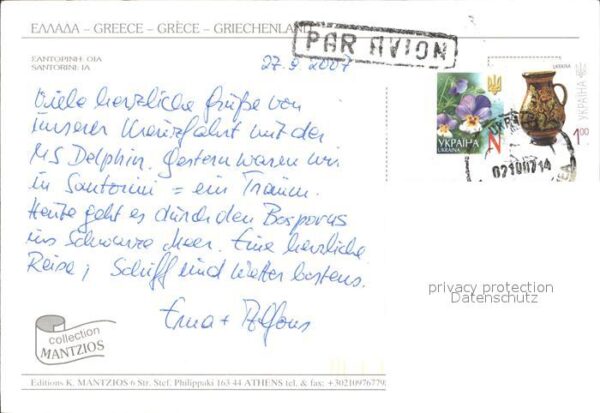 ΕΛΛΑΔΑ - GREECE - GRÈCE - GRIECHENLAND
ΣΑΝΤΟΡΙΝΗ: ΟΙΑ
SANTORINI: IA
PAR AVION
27.9.2007
Viele herzliche Grüße von
unserer Kreuzfahrt mit der
MS Delphin. Gestern waren wir
in Santorini = ein Traum.
Heute geht es durch den Bosporus
ins Schwarze Meer. Eine herzliche
Reise; Schiff und Wetter bestens.
Erna + Alfons
УКРАЇНА
UKRAINA
N
UKRAINA
УКРАЇНА
1.00
02100714
privacy protection
Datenschutz
collection
MANTZIOS
Editions K. MANTZIOS 6 Str. Stef. Philippaki 163 44 ATHENS tel. & fax: +30210976779